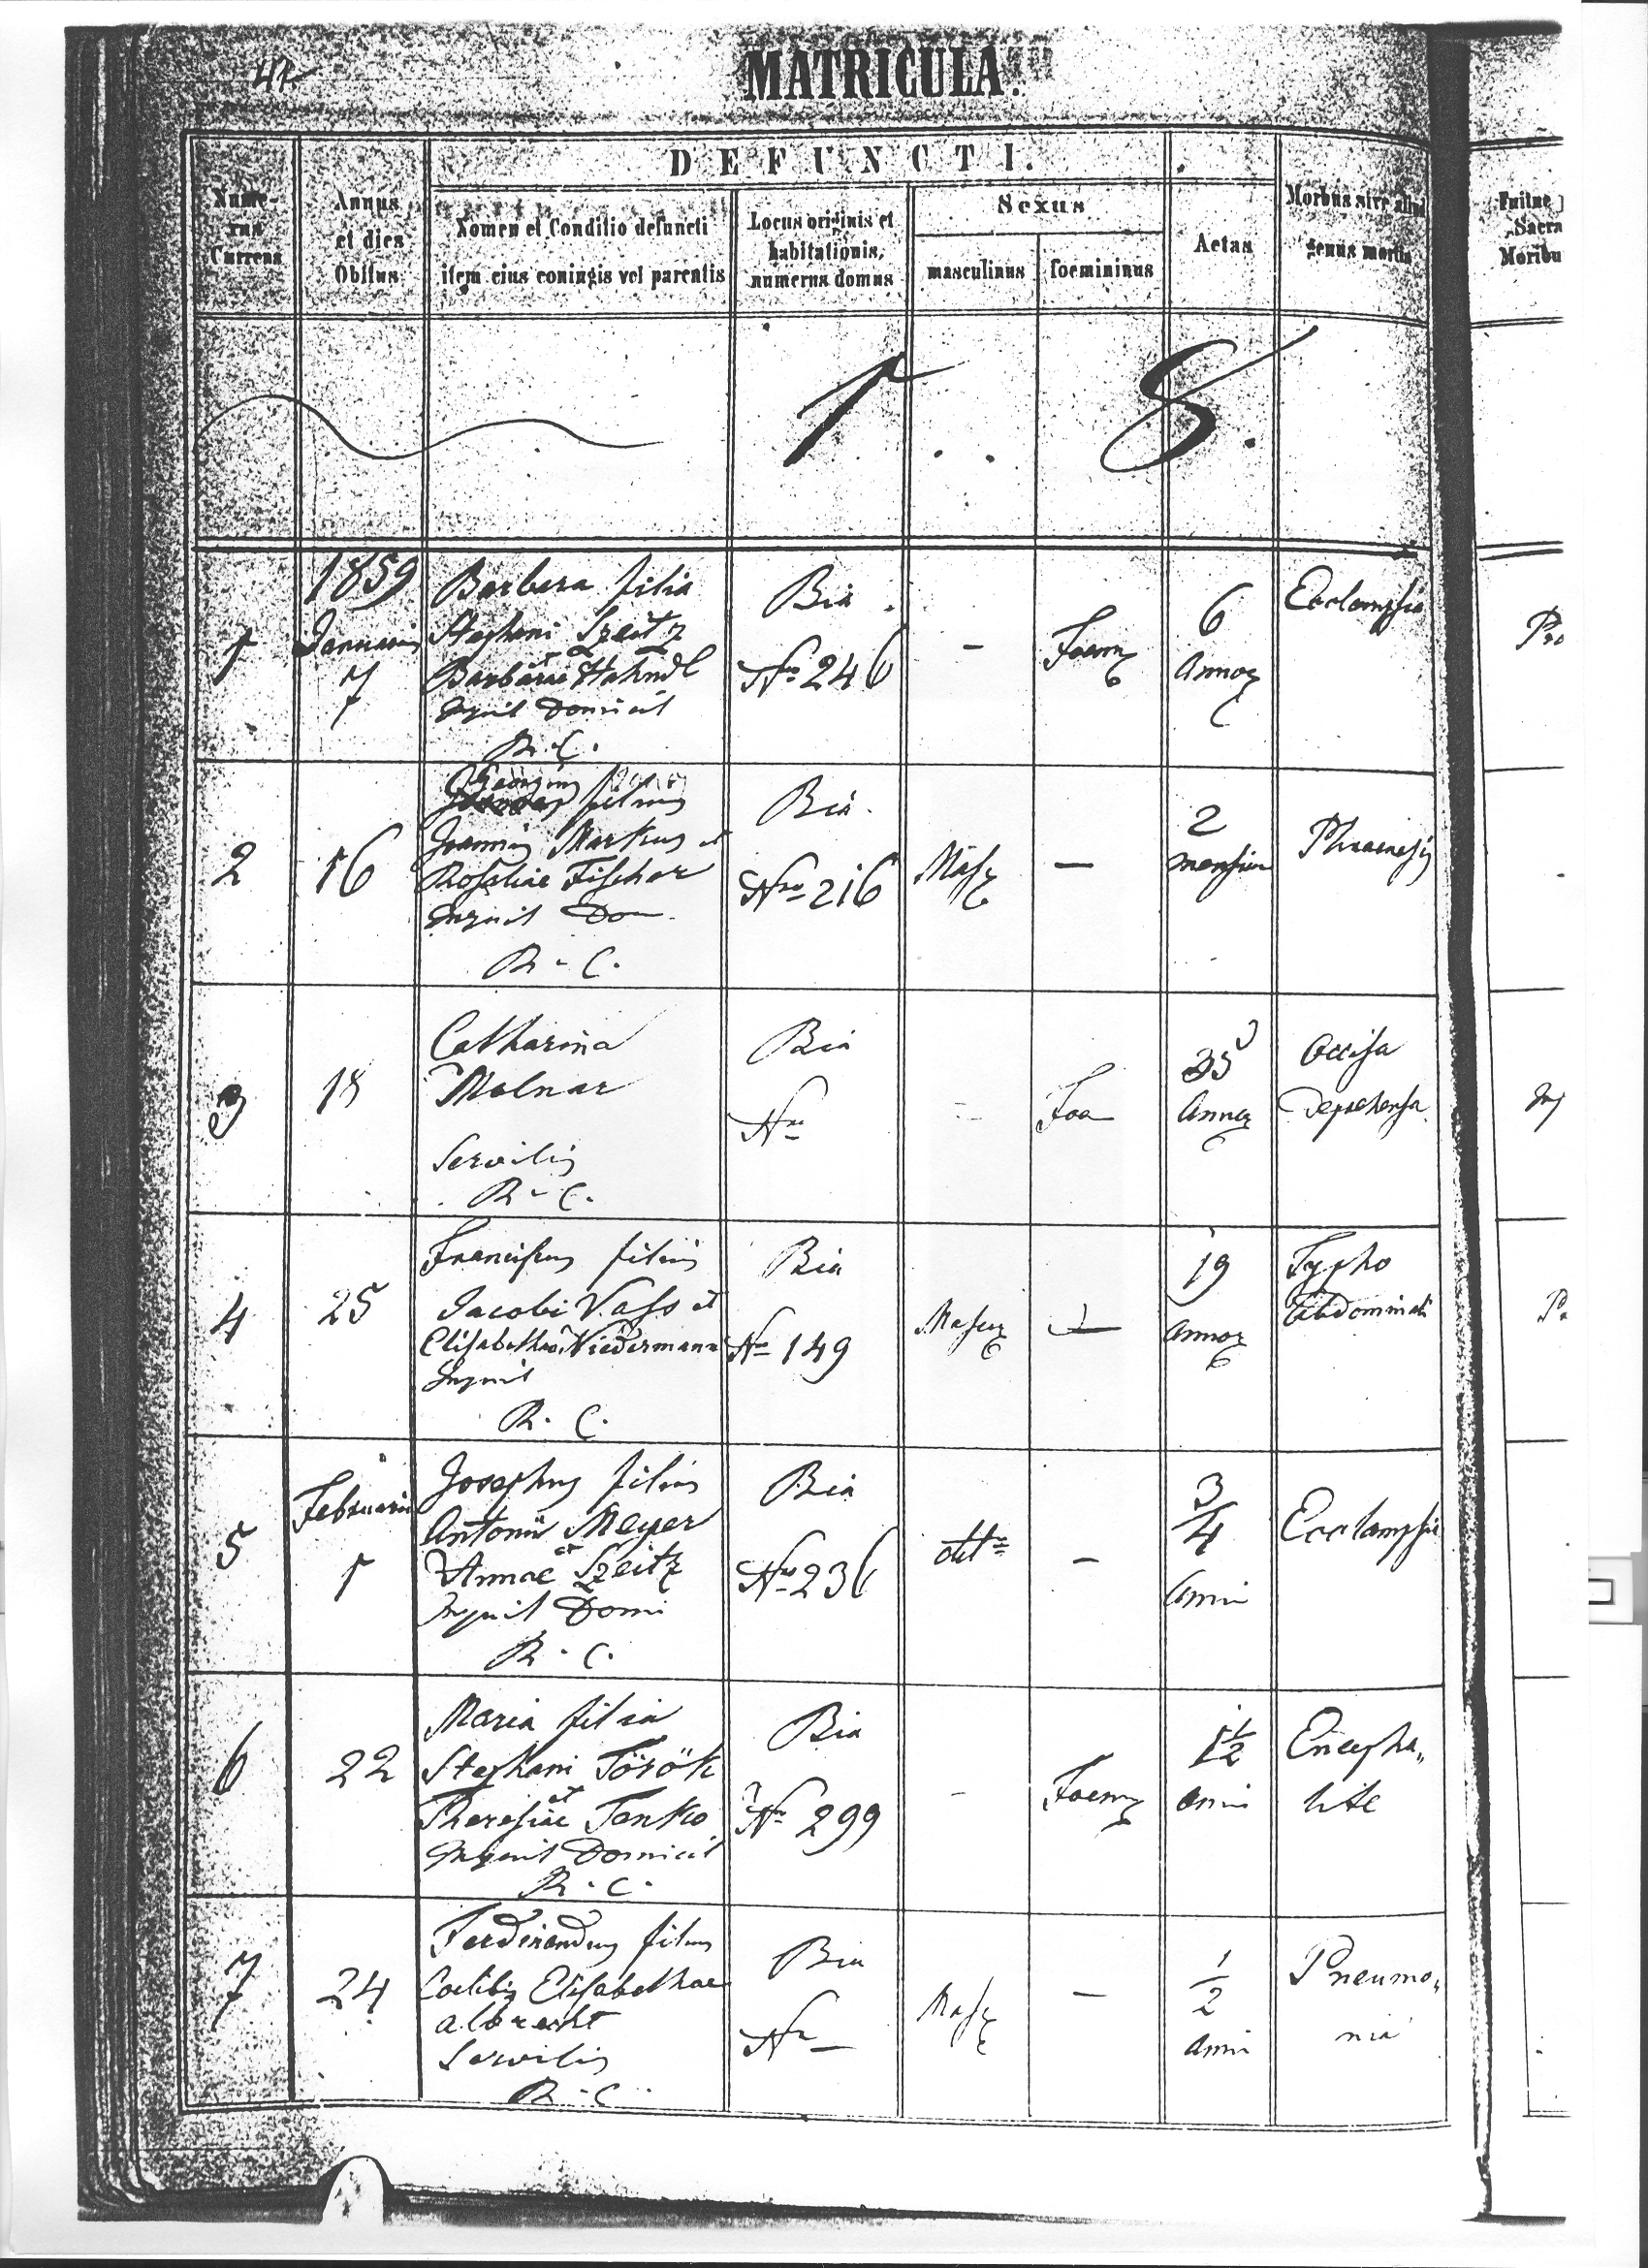 42
MATRICULA.
DEFUNCTI.
Numerus Currens
Annus et dies Obitus
Nomen et Conditio defuncti
item eius coniugis vel parentis
Locus originis et habitationis, numerus domus
Sexus
masculinus
foemininus
Aetas
Morbus sive aliud genus mortis
Fuitne
Sacra
Moribu
1 8.
1
1859
Januarii
7
Barbara filia
Stephani Szeitz
et
Barbarae Hahndl
Inquil Domicil
R. C.
Bia
Nro 246
-
Foem
6
Annor
Ecclampsia
2
16
Georgius
filius
Joannis Markus et
Rosaliae Fischer
Inquil Dom.
R - C.
Bia.
Nro 216
Masc
-
2
mensium
3
18
Catharina
Molnar
Servilis
R - C.
Bia
Nro
-
Foe
35
Annor
Occisa
Deprehensa
4
25
Franciscus filius
Jacobi Vass et
Elisabethae Niedermann
Inquil
R. C.
Bia
Nro 149
Mascu
-
19
Annor
Typho
Abdominali
5
Februarii
1
Josephus filius
Antonii Meyer
et
Annae Szeitz
Inquil Domi
R. C.
Bia
Nro 236
-
3/4
Anni
Ecclampsia
6
22
Maria filia
Stephani Török
et
Theresiae Tanko
Inquil Domicil
R. C.
Bia
Nro 299
-
Foem
1 1/2
Anni
Encepha„
lite
7
24
Ferdinandus filius
Coelibis Elisabethae
Albrecht
Servilis
R. C.
Bia
Nro -
Masc
-
1/2
Anni
Pneumo„
nia